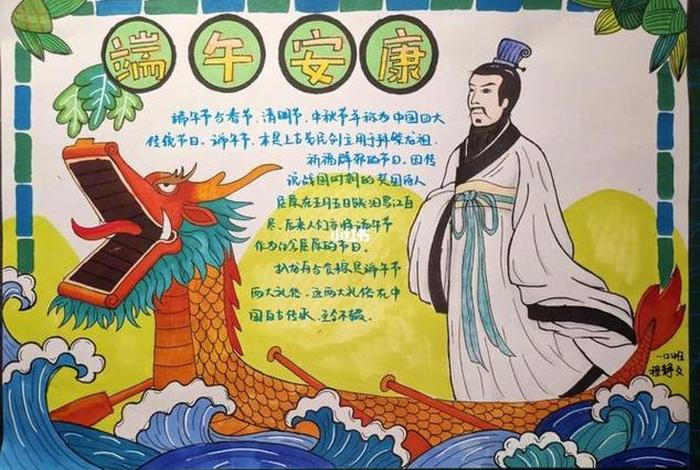 端午安康
端午节与春节、清明节、中秋节并称为中国四大
传统节日。端午节，本是上古先民创立用于拜祭龙祖、
祈福辟邪的节日。因传
说战国时期的楚国诗人
屈原在五月五日跳汨罗江自
尽，后来人们亦将端午节
作为纪念屈原的节日。
扒龙舟与食粽是端午节
两大礼俗，这两大礼俗在中
国自古传承，至今不辍。
小红书
一口班